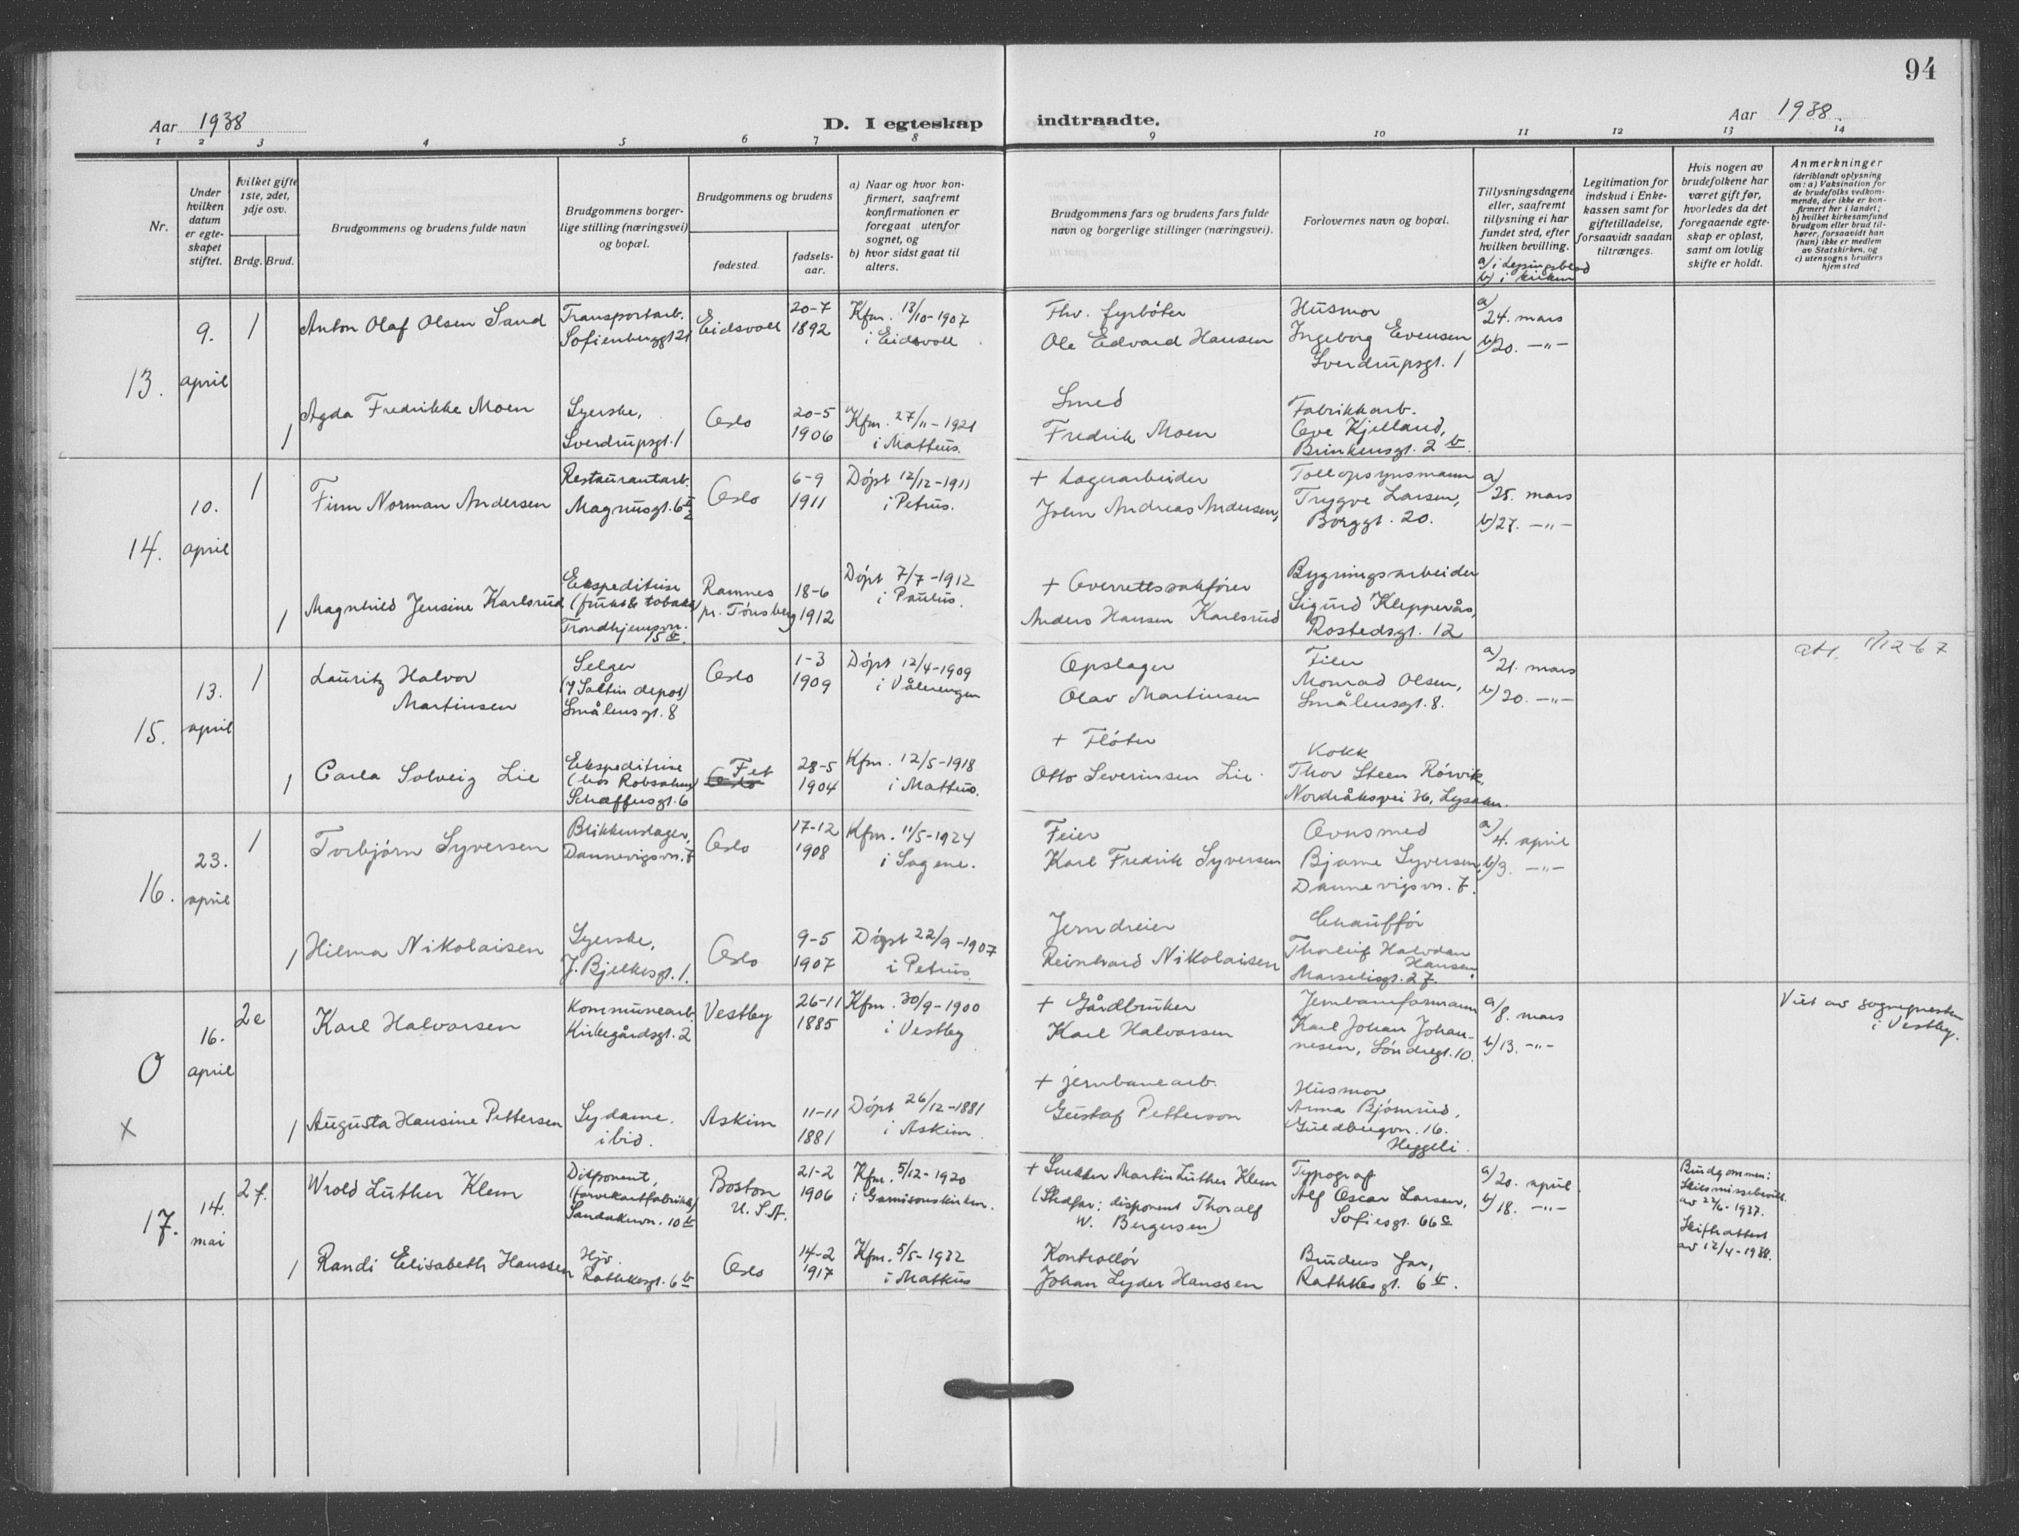 94
Aar 1938
D. I egteskap indtraadte.
Aar 1938.
1 2 3 4 5 6 7 8 9 10 11 12 13 14
Nr.
Under hvilken datum er egteskapet stiftet.
hvilket gifte 1ste, 2det, 3dje osv.
Brdg. Brud.
Brudgommens og brudens fulde navn
Brudgommens borgerlige stilling (næringsvei) og bopæl.
Brudgommens og brudens
fødested.
fødselsaar.
a) Naar og hvor konfirmert, saafremt konfirmationen er foregaat utenfor sognet, og
b) hvor sidst gaat til alters.
Brudgommens fars og brudens fars fulde navn og borgerlige stillinger (næringsvei).
Forlovernes navn og bopæl.
Tillysningsdagene eller, saafremt tillysning ei har fundet sted, efter hvilken bevilling.
a) i lysningsblad
b) i kirken
Legitimation for indskud i Enkekassen samt for giftetilladelse, forsaavidt saadan tiltrænges.
Hvis nogen av brudefolkene har været gift før, hvorledes da det foregaaende egteskap er opløst, samt om lovlig skifte er holdt.
Anmerkninger
(deriblandt oplysning om: a) Vaksination for de brudefolks vedkommende, der ikke er konfirmert her i landet; b) hvilket kirkesamfund brudgom eller brud tilhører, forsaavidt han (hun) ikke er medlem av Statskirken, og c) utensogns bruders hjemsted
13.
9. april
1
Anton Olaf Olsen Sand
Transportarb.
Sofienberggt 21
Eidsvoll
20-7
1892
Kfm. 13/10-1907
i Eidsvoll
Fhv. fyrbøter
Ole Edvard Hansen
Husmor
Ingeborg Evensen
Sverdrupsgt. 1
a) 24. mars
b) 20. -"-
1
Agda Fredrikke Moen
Syerske,
Sverdrupsgt. 1
Oslo
20-5
1906
Kfm. 27/11-1921
i Matteus.
Smed
Fredrik Moen
Fabrikkarb.
Ove Kjelland,
Brinkensgt. 2 b.
14.
10. april
1
Finn Norman Andersen
Restaurantarb.
Magnusgt. 6
Oslo
6-9
1911
Døpt 12/12-1911
i Petrus.
+ Lagerarbeider
John Andreas Andersen,
Tollopsynsmann
Trygve Larsen,
Borggt. 20.
a) 25. mars
b) 27. -"-
1
Magnhild Jensine Karlsrud
Ekspeditrise
(frukt & tobakk)
Trondhjemsvn. 15
Ramnes
pr. Tønsberg
18-6
1912
Døpt 7/7-1912
i Paulus.
+ Overrettssakfører
Anders Hansen Karlsrud
Bygningsarbeider
Sigurd Klepperås,
Rostedsgt. 12
15.
13. april
1
Lauritz Halvor
Martinsen
Selger
Smålensgt. 8
Oslo
1-3
1909
Døpt 12/4-1909
i Vålerengen
Opslager
Olav Martinsen
Filer
Monrad Olsen,
Smålensgt. 8.
a) 21. mars
b) 20. -"-
att. 1/12-67
1
Carla Solveig Lie
Ekspeditrise
(hos Robsahm)
Schæffersgt. 6
Fet
Oslo
28-5
1904
Kfm. 12/5-1918
i Matteus.
+ Fløter
Otto Severinsen Lie.
Kokk
Thor Steen Rørvik,
Nordråksvei 36, Lysaker.
16.
23. april
1
Torbjørn Syversen
Blikkenslager,
Dannevigsvn. 7
Oslo
17-12
1908
Kfm. 11/5-1924
i Sagene.
Feier
Karl Fredrik Syversen
Ovnsmed
Bjarne Syversen,
Dannevigsvn. 7.
a) 4. april
b) 3. -"-
1
Hilma Nikolaisen
Syerske,
J. Bjelkesgt. 1.
Oslo
9-5
1907
Døpt 22/9-1907
i Petrus
Jerndreier
Reinhard Nikolaisen
Chauffør
Thorleif Halvdan
Hansen
Marselisgt. 27.
0
x
16. april
2e
Karl Halvorsen
Kommunearb.
Kirkegårdsgt. 2
Vestby
26-11
1885
Kfm. 30/9-1900
i Vestby
+ Gårdbruker
Karl Halvorsen
Jernbaneformann
Karl Johan Johannesen, Søndregt. 10.
a) 8. mars
b) 13. -"-
Viet av sognepresten
i Vestby.
1
Augusta Hansine Pettersen
Sydame.
ibid.
Askim
11-11
1881
Døpt 26/12-1881
i Askim.
+ jernbanearb.
Gustaf Petterson
Husmor
Anna Bjørnrud,
Guldbergvn. 16.
Heggeli.
17.
14. mai
2 f.
Wrold Luther Klem
Disponent,
(farvekartfabrikk)
Sandakervn. 10 b
Boston
U.S.A.
21-2
1906
Kfm. 5/12-1920
i Garnisonskirken.
+ Snekker Martin Luther Klem
(Stefar: disponent Thoralf
W. Bergersen)
Typograf
Alf Oscar Larsen,
Sofiesgt. 66 c
a) 20. april
b) 18. -"-
Brudgommen:
Skilsmissebevill.
av 22/6-1937.
Skifteattest
av 12/4-1938.
1
Randi Elisabeth Hanssen
Hjv.
Rathkesgt. 6 b
Oslo
14-2
1917
Kfm. 5/5-1932
i Matteus
Kontrollør
Johan Lyder Hanssen
Brudens far,
Rathkesgt. 6 b.